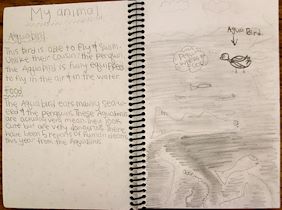 My animal
Aquabird
This bird is able to fly & swim.
Unlike their cousin, the penguin,
the Aquabird is fully equipped
to fly in the air & in the water
Food
The Aquabird eats mainly seaw-
eed & the penguins. These Aquabirds
are actually very mean. They look
cute but are very dangerous. There
have been 5 reports of human deaths
this year from the Aquabirds
Aqua Bird